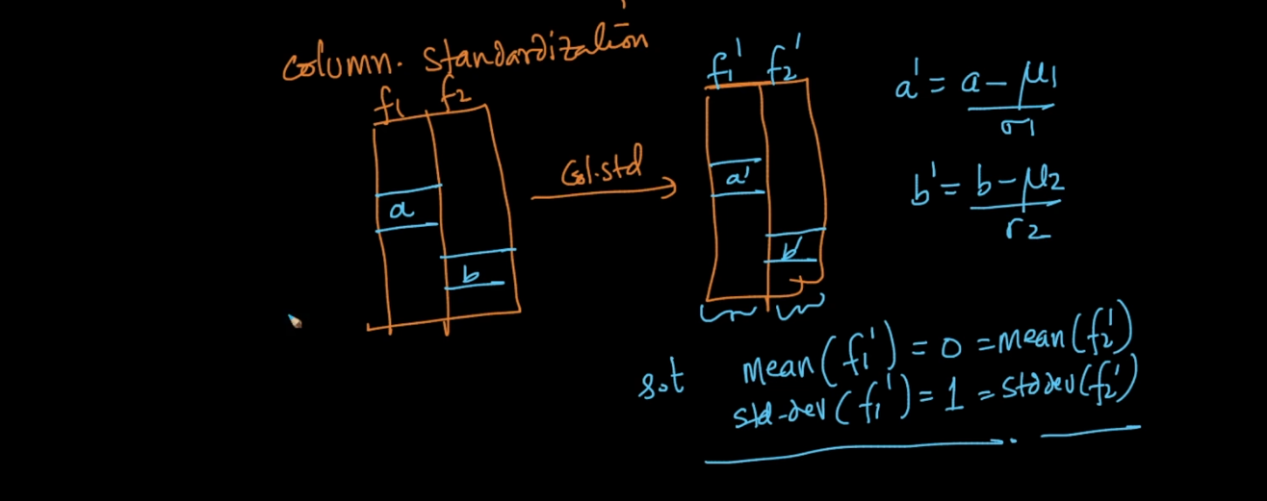 column. standardization
f1 f2
a
b
Col.std
f1' f2'
a'
b'
a' = a - μ1
σ1
b' = b - μ2
σ2
s.t mean(f1') = 0 = mean(f2')
std-dev(f1') = 1 = stddev(f2')